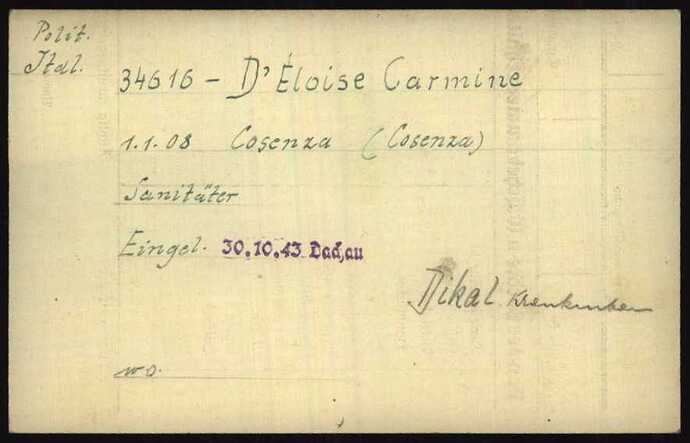 Polit.
Ital.
34616 - D'Éloise Carmine
1.1.08 Cosenza (Cosenza)
Sanitäter
Eingel. 30.10.43 Dachau
Dikal
wo.